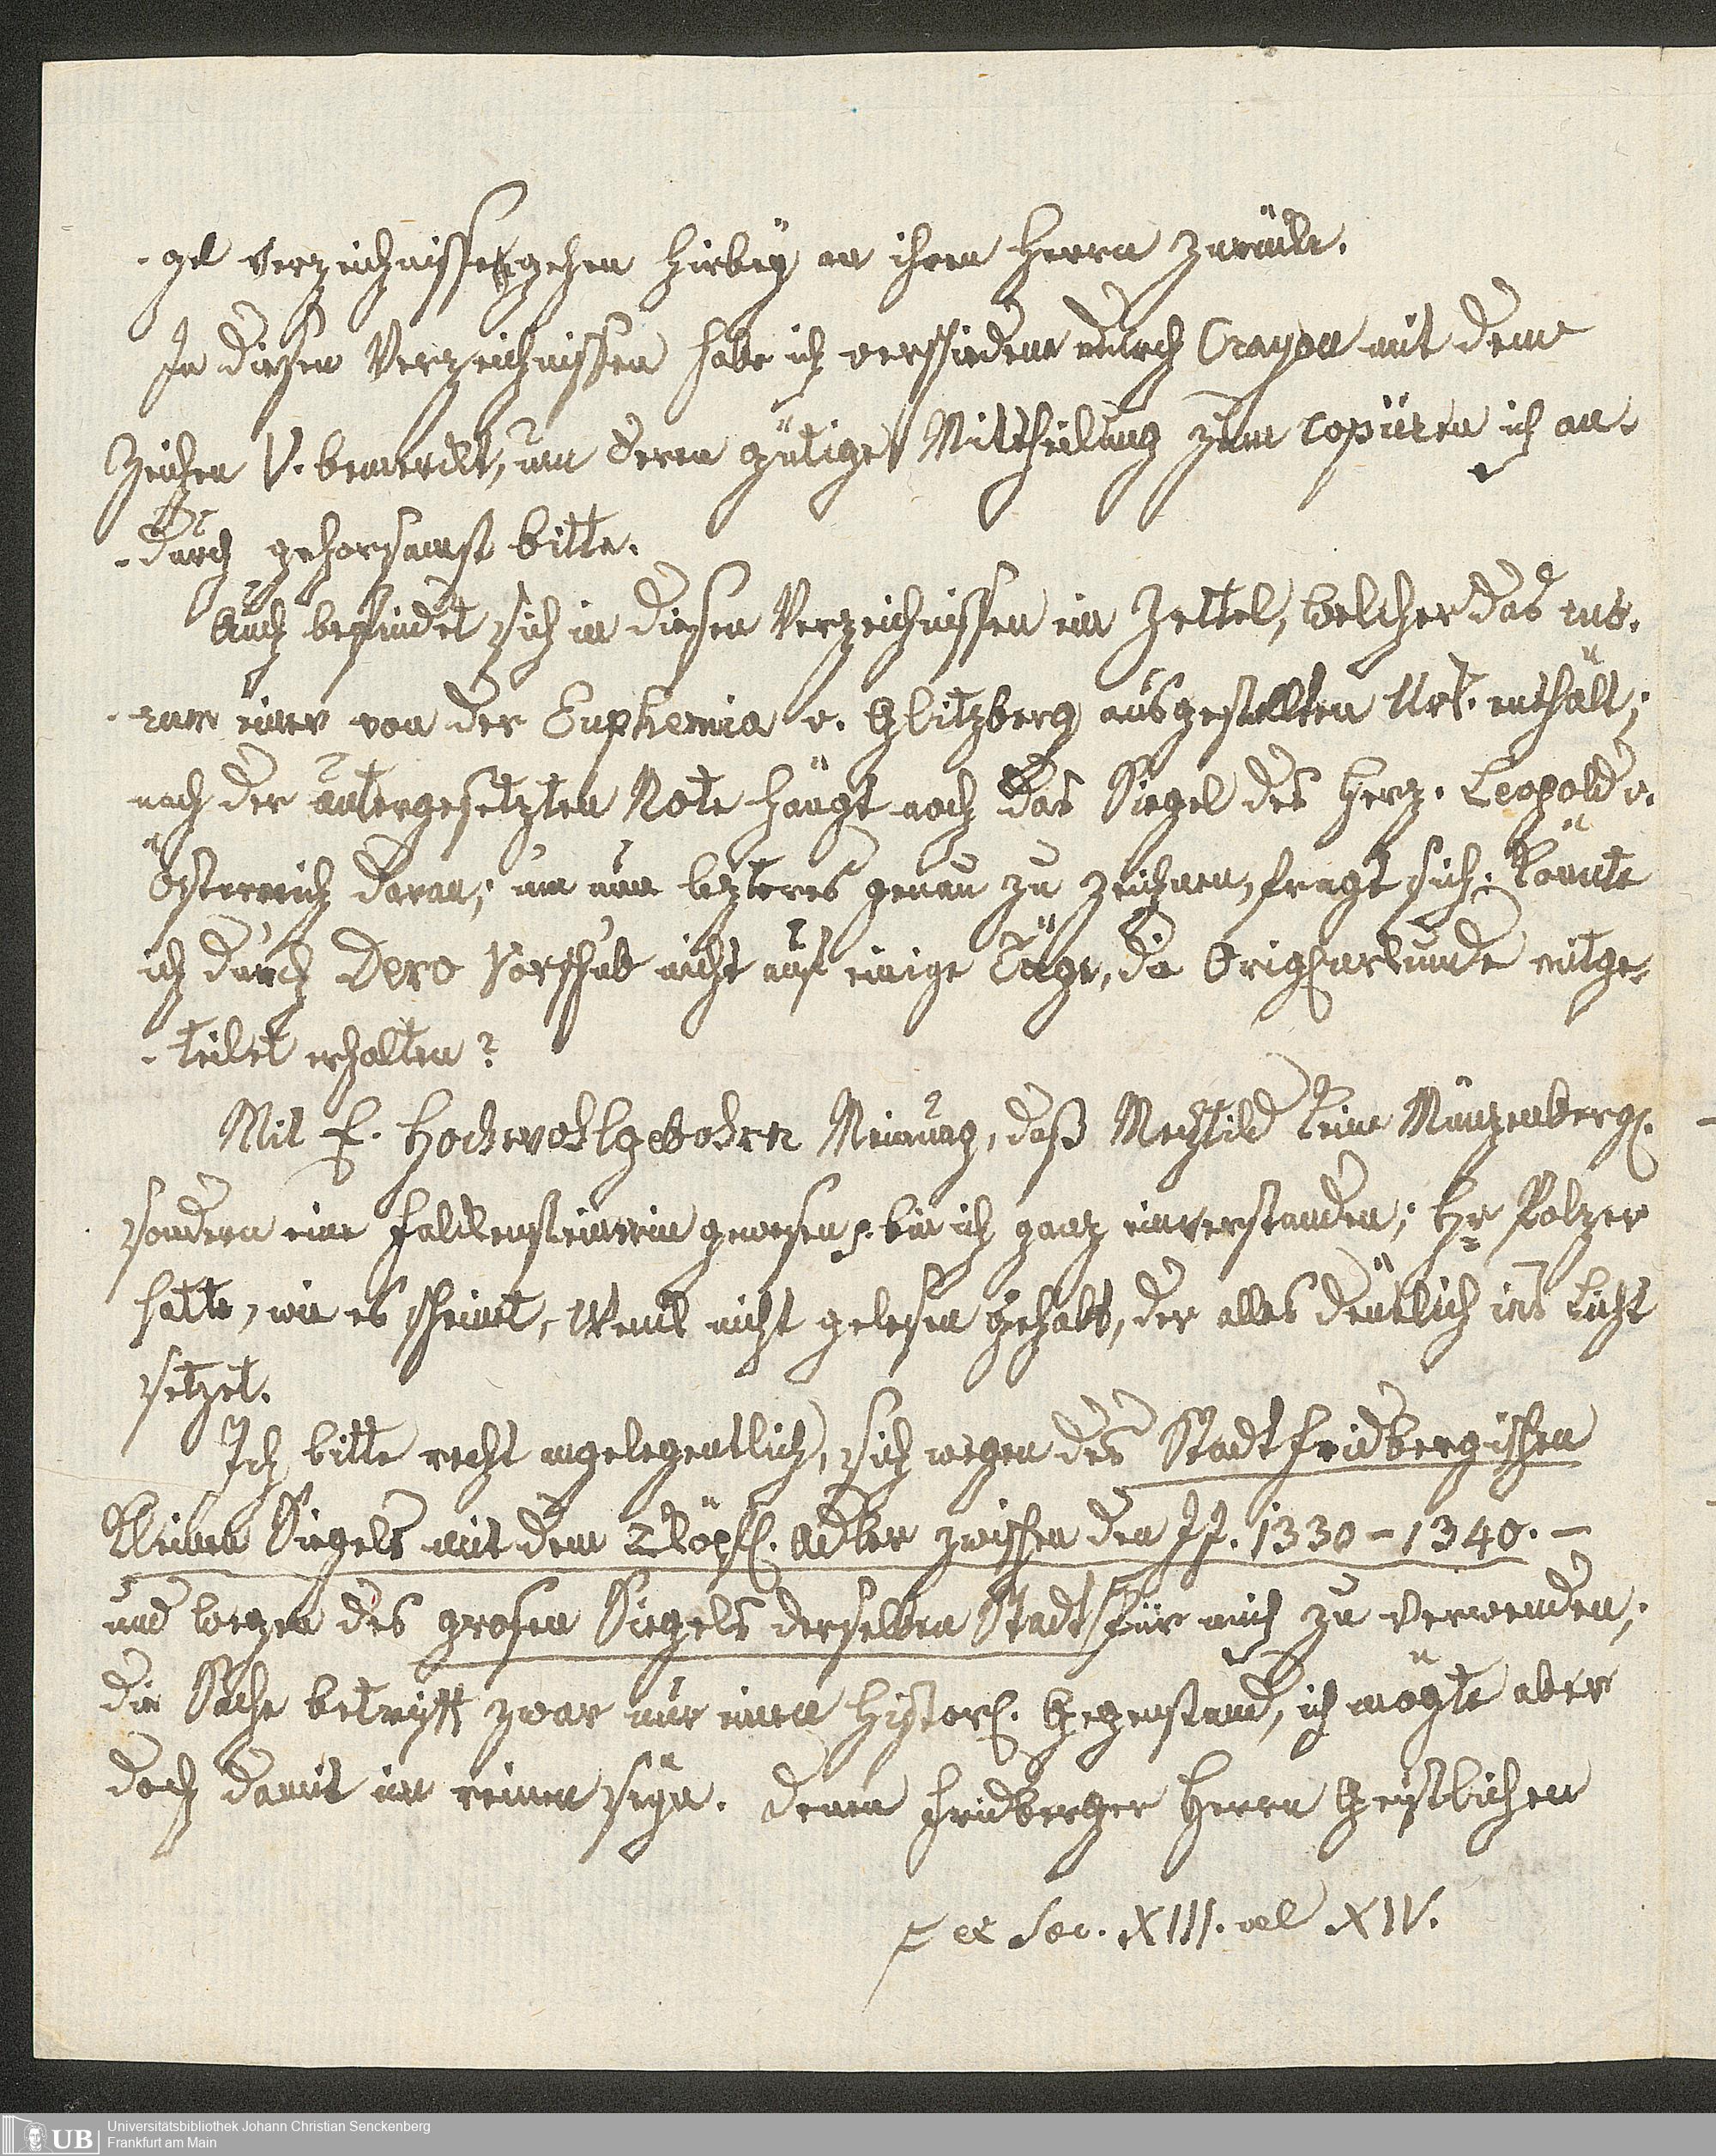 -gel Verzeichnisse gehen hirbey an ihren Herrn zurück.
In diesen Verzeichnissen habe ich verschiedene durch Crayon mit dem
Zeichen V. bemerckt, um deren gütige Mittheilung zum copüren ich an-
-durch gehorsamst bitte.
Auch befindet sich in diesen Verzeichnissen ein Zettel, welcher das rub-
-rum einer von der Euphemia v. Glitzberg ausgestellten Urk. enthält;
nach der untergesetzten Note hängt noch das Siegel des Herz. Leopold v.
Österreich daran; um nun lezteres genau zu zeichnen, fragt sich: könnte
ich durch Dero Vorschub nicht auf einige Täge, die Origlurkunde mitge-
-teilet erhalten?
Mit E. Hochwohlgebohrn Meinung, daß Mechtild keine Münzenberg.
sondern eine Falckensteinerin gewesen, bin ich ganz einverstanden; Hr Polzer
hatte, wie es scheint, Wenck nicht gelesen gehabt, der alles deutlich ins Licht
setzet.
Ich bitte recht angelegentlich, sich wegen des Stadt Fridbergischen
kleinen Siegels mit dem 2köpf. Adler zwischen den JJ. 1330-1340. –
und wegen des grosen Siegels derselben Stadt für mich zu verwenden;
die Sache betrifft zwar nur einen Histor. Gegenstand, ich mögte aber
doch damit im reinen seyn. Denen Fridberger Herrn Geistlichen
ex Sec. XIII. vel XIV.
Universitätsbibliothek Johann Christian Senckenberg
Frankfurt am Main
UB